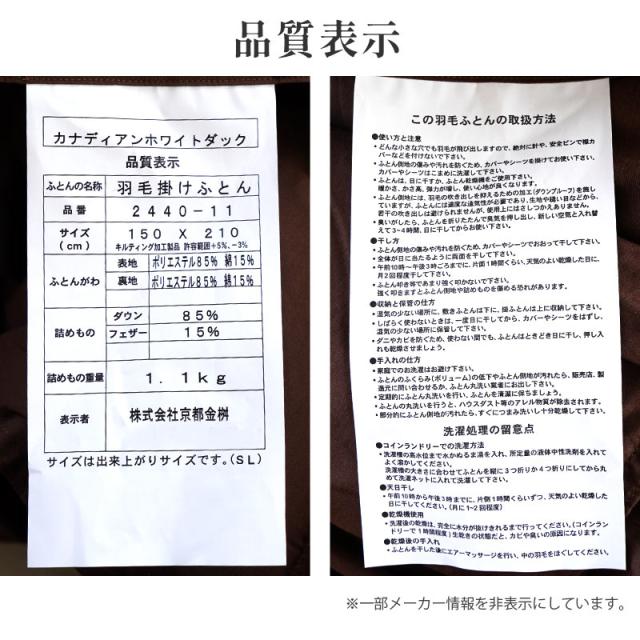 品質表示
カナディアンホワイトダック
品質表示
ふとんの名称 羽毛掛けふとん
品番 2440-11
サイズ(cm) 150 X 210
キルティング加工製品 許容範囲+5%、-3%
ふとんがわ 表地 ポリエステル85% 綿15%
裏地 ポリエステル85% 綿15%
詰めもの ダウン 85%
フェザー 15%
詰めもの重量 1.1kg
表示者 株式会社京都金桝
サイズは出来上がりサイズです。(SL)
この羽毛ふとんの取扱方法
●使い方と注意
・どんな小さな穴でも羽毛が飛び出しますので、絶対に針や、安全ピンで襟カ
バーなどを付けないで下さい。
・ふとん側地の傷みや汚れを防ぐため、カバーやシーツを掛けてお使い下さい。
カバーやシーツはこまめに洗濯して下さい。
・ふとんは、日に干すか、ふとん乾燥機をご使用下さい。
暖かさ、かさ高、弾力が増し、使い心地が良くなります。
・ふとん側地には、羽毛の吹き出しを抑えるための加工(ダウンプルーフ)を施し
ていますが、ふとんには適度な通気性が必要であり、生地や縫い目などから、
若干の吹き出しは避けられませんが、使用上にはさしつかえありません。
・臭いがしたら、ふとんを折りたたんで臭気を押し出し、新しい空気と入れ替
えて3~4時間、日に干してからお使い下さい。
●干し方
・ふとん側地の傷みや汚れを防ぐため、カバーやシーツでおおって干して下さい。
・全体が日に当たるように両面を干して下さい。
・午前10時~午後3時ごろまでに、片面1時間くらい、天気のよい乾燥した日に、
月2回程度干して下さい。
・ふとん叩き等であまり強く叩かないで下さい。
強く叩きますとふとん側地や詰めものを傷める恐れがあります。
●収納と保管の仕方
・湿気の少ない場所に、敷きふとんは下に、掛ふとんは上に収納して下さい。
・しばらく使わないときは、一度日に干してから、カバーやシーツをはずし、
湿気の少ない場所に保管して下さい。
・ダニやカビを防ぐため、使わない間でも、ふとんはときどき日に干し、押し入
れも乾燥させましょう。
●手入れの仕方
・家庭でのお洗濯はお避け下さい。
・ふとんのふくらみ(ボリューム)の低下やふとん側地が汚れたら、販売店、製
造元に問い合わせるか、ふとん丸洗い業者にお出し下さい。
・定期的にふとん丸洗いを行い、ふとんを清潔に保ちましょう。
・ふとんの丸洗いを行うと、ハウスダスト等のアレル物質が除去されます。
・部分的にふとん側地が汚れたら、すぐにつまみ洗いし十分乾燥して下さい。
洗濯処理の留意点
●コインランドリーでの洗濯方法
・洗濯槽の高水位まで水かぬるま湯を入れ、所定量の液体中性洗剤を入れて
よく溶かしてください。
・洗濯槽の大きさに合わせてふとんを縦に3つ折りか4つ折りにしてから丸
めて洗濯ネットに入れて洗濯して下さい。
●天日干し
・午前10時から午後3時までに、片側1時間くらいずつ、天気のよい乾燥した
日に干してください。(月に1~2回程度)
●乾燥機使用
・洗濯後の乾燥は、完全に水分が抜けきれるまで行ってください。(コインラン
ドリーで1時間程度)生乾きの状態だと、カビや臭いの原因になります。
●乾燥後の手入れ
・ふとんを干した後にエアーマッサージを行い、中の羽毛をほぐしてください。
※一部メーカー情報を非表示にしています。